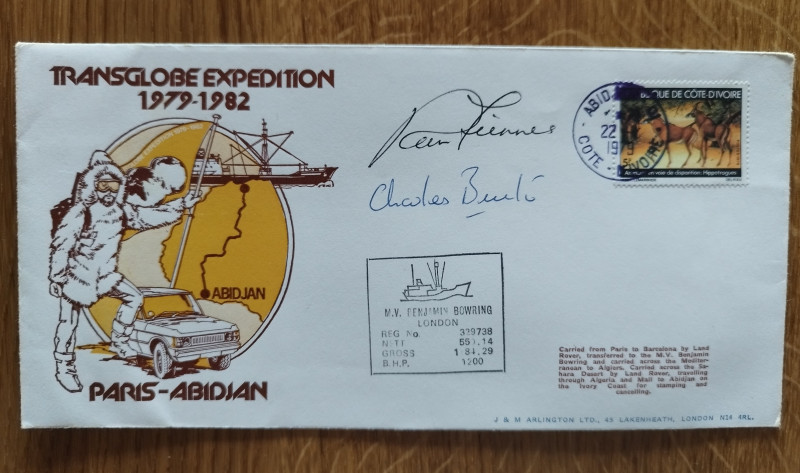 TRANSGLOBE EXPEDITION
1979-1982
ABIDJAN
PARIS-ABIDJAN
Ran Fiennes
Charles Burton
ABIDJAN
22
197
COTE D'IVOIRE
BLIQUE DE CÔTE D'IVOIRE
en voie de disparition: Hippotragues
M.V. BENJAMIN BOWRING
LONDON
REG No. 339738
NETT
GROSS
B.H.P. 1200
Carried from Paris to Barcelona by Land
Rover, transferred to the M.V. Benjamin
Bowring and carried across the Mediter-
ranean to Algiers. Carried across the Sa-
hara Desert by Land Rover, travelling
through Algeria and Mali to Abidjan on
the Ivory Coast for stamping and
cancelling.
J & M ARLINGTON LTD., 45 LAKENHEATH, LONDON N14 4RL.